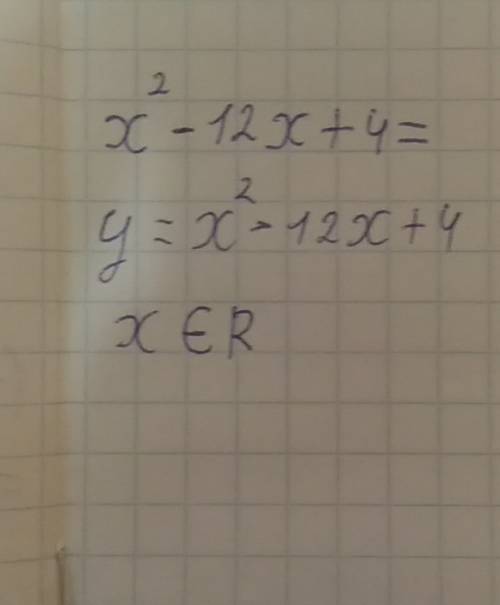 x² - 12x + 4 =
y = x² - 12x + 4
x ∈ R